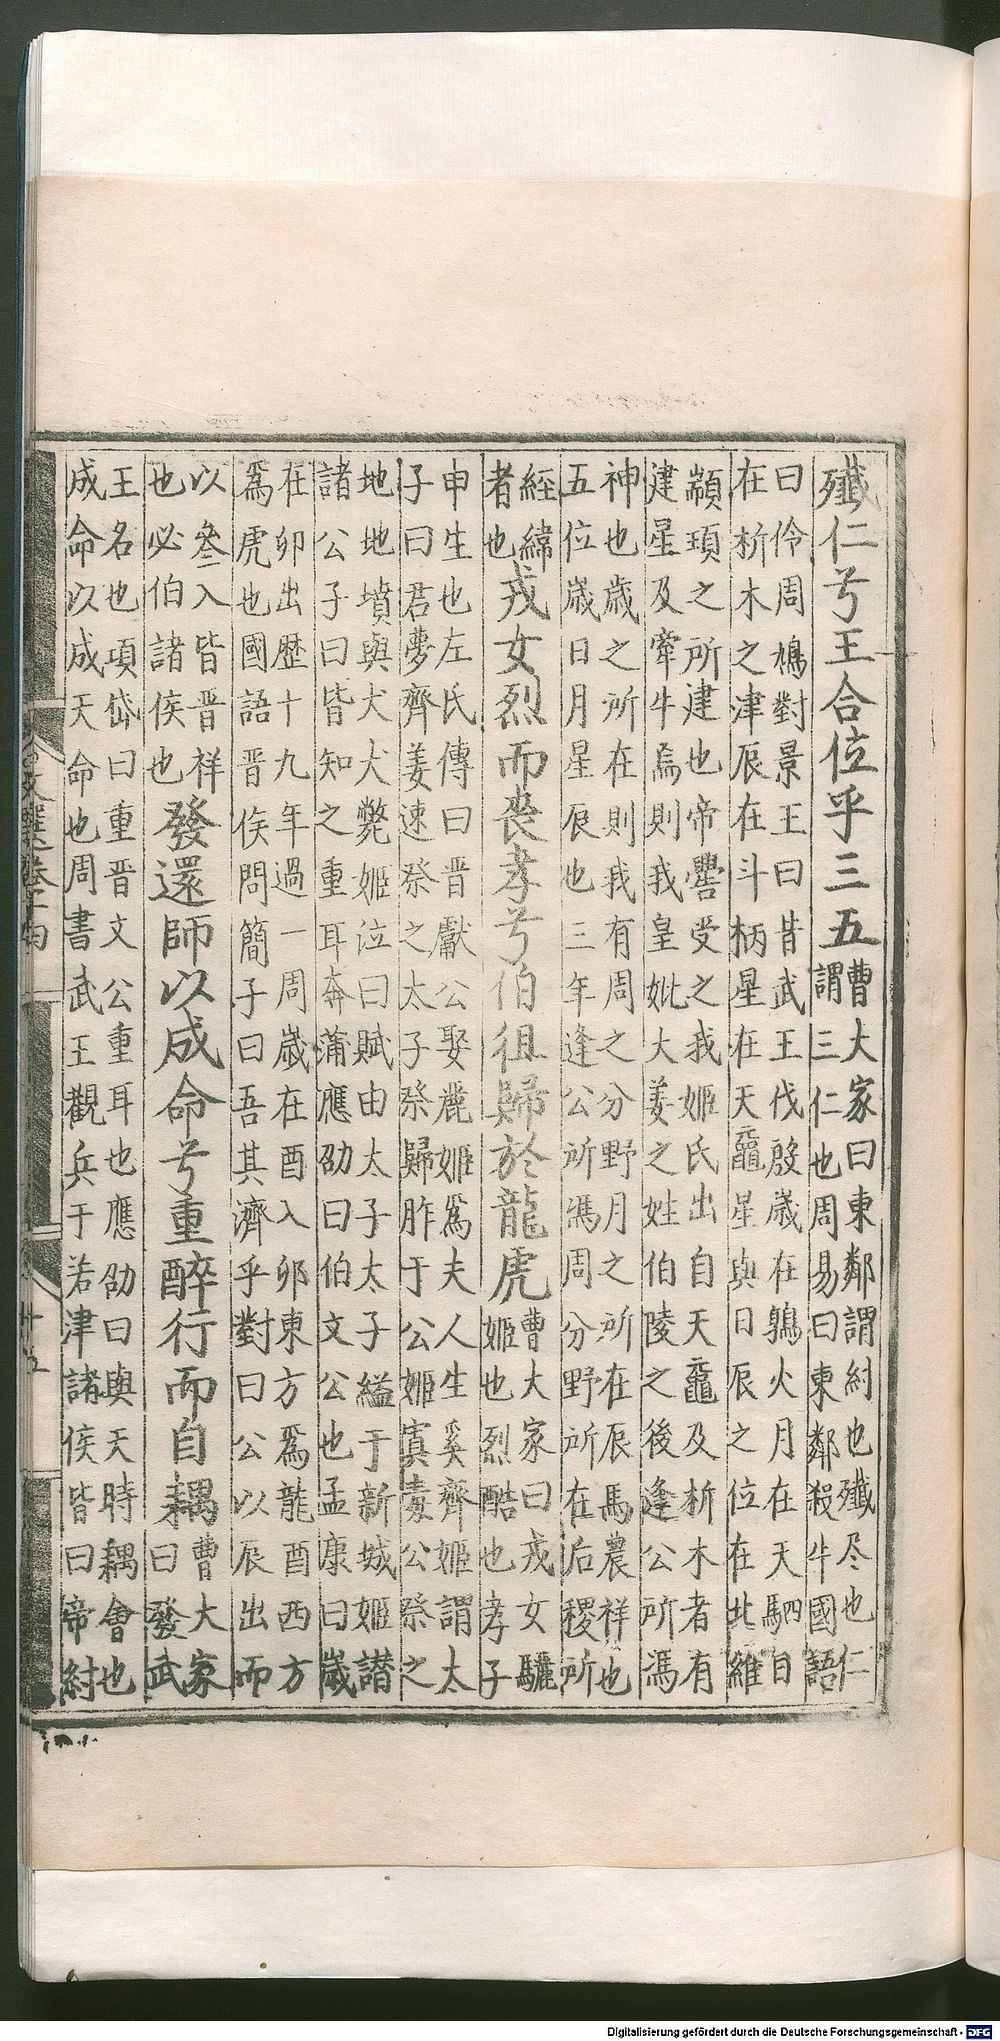 殲仁兮王合位乎三五曹大家曰東鄰謂紂也殲尽也仁
謂三仁也周易曰東鄰殺牛國語
曰伶周鳩對景王曰昔武王伐殷歳在鶉火月在天駟日
在析木之津辰在斗柄星在天黿星與日辰之位在北維
顓頊之所建也帝嚳受之我姬氏出自天黿及析木者有
建星及牽牛焉則我皇妣大姜之姪伯陵之後逢公所馮
神也歳之所在則我有周之分野月之所在辰馬農祥也
五位歳日月星辰也三年逢公所馮周分野所在后稷所
經緯
者也
戎女烈而喪孝兮伯徂歸於龍虎曹大家曰戎女驪
姬也烈酷也孝子
申生也左氏傳曰晋獻公娶麗姬爲夫人生奚齊姬謂太
子曰君夢齊姜速祭之太子祭歸胙于公姬寘毒公祭之
地地墳與犬犬斃姬泣曰賊由太子太子縊于新城姬譖
諸公子曰皆知之重耳奔蒲應劭曰伯文公也孟康曰歳
在卯出歷十九年過一周歳在酉入卯東方爲龍酉西方
爲虎也國語晋侯問簡子曰吾其濟乎對曰公以辰出而
以叅入皆晋祥
也必伯諸侯也
發還師以成命兮重醉行而自耦曹大家
曰發武
王名也項岱曰重晋文公重耳也應劭曰與天時耦會也
成命以成天命也周書武王觀兵于孟津諸侯皆曰帝紂
文選卷十四
十五
Digitalisierung gefördert durch die Deutsche Forschungsgemeinschaft - DFG